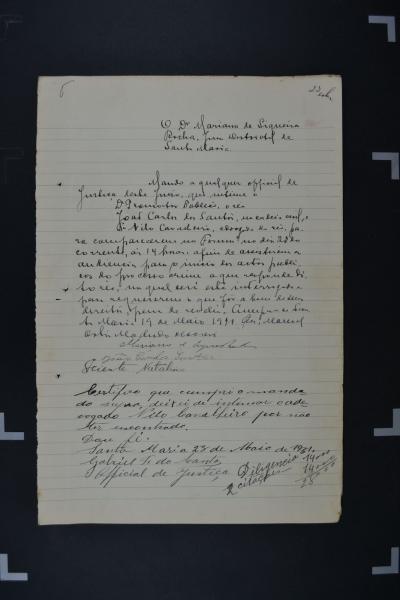 O Dr Mariano de Siqueira
Rocha, Juiz Districtal de
Santa Maria
Mando a qualquer official de
Justiça deste Juizo, que intime o
Dr Promotor Publico, o réo
João Carlos dos Santos,
Dr Nilo Cavalheiro, advogado do réo, pa-
ra comparecerem no Forum no dia 22 do
corrente, ás 14 horas, afim de assistirem a
audiencia para o inicio dos actos publi-
cos do processo crime a que responde di-
to réo, no qual será este interrogado
para requererem o que fôr a bem de seus
direitos, pena de revelia. Cumpra-se. San-
ta Maria 19 de Maio 1931. Eu, Manoel
Machado, escrivão
Mariano de Siqueira Rocha
João Carlos Santos
Sciente
Certifico que cumpri o manda-
do supra, deixei de intimar o ad-
vogado Nillo Cavalheiro por não
ter encontrado.
Dou fé.
Santa Maria 23 de Maio de 1931.
Gabriel
Official de Justiça
Diligencia 14
2 citações 14
28